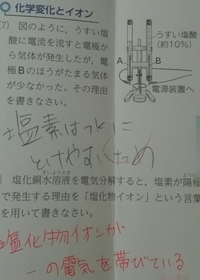 化学変化とイオン
(7) 図のように、うすい塩
酸に電流を流すと電極か
ら気体が発生したが、電
極Bのほうがたまる気体
が少なかった。その理由
を書きなさい。
うすい塩酸
(約10%)
A
B
電源装置へ
塩素は水に
とけやすいため
塩化銅水溶液を電気分解すると、塩素が陽極
で発生する理由を「塩化物イオン」という言葉
を用いて書きなさい。
塩化物イオンが
ーの電気を帯びている